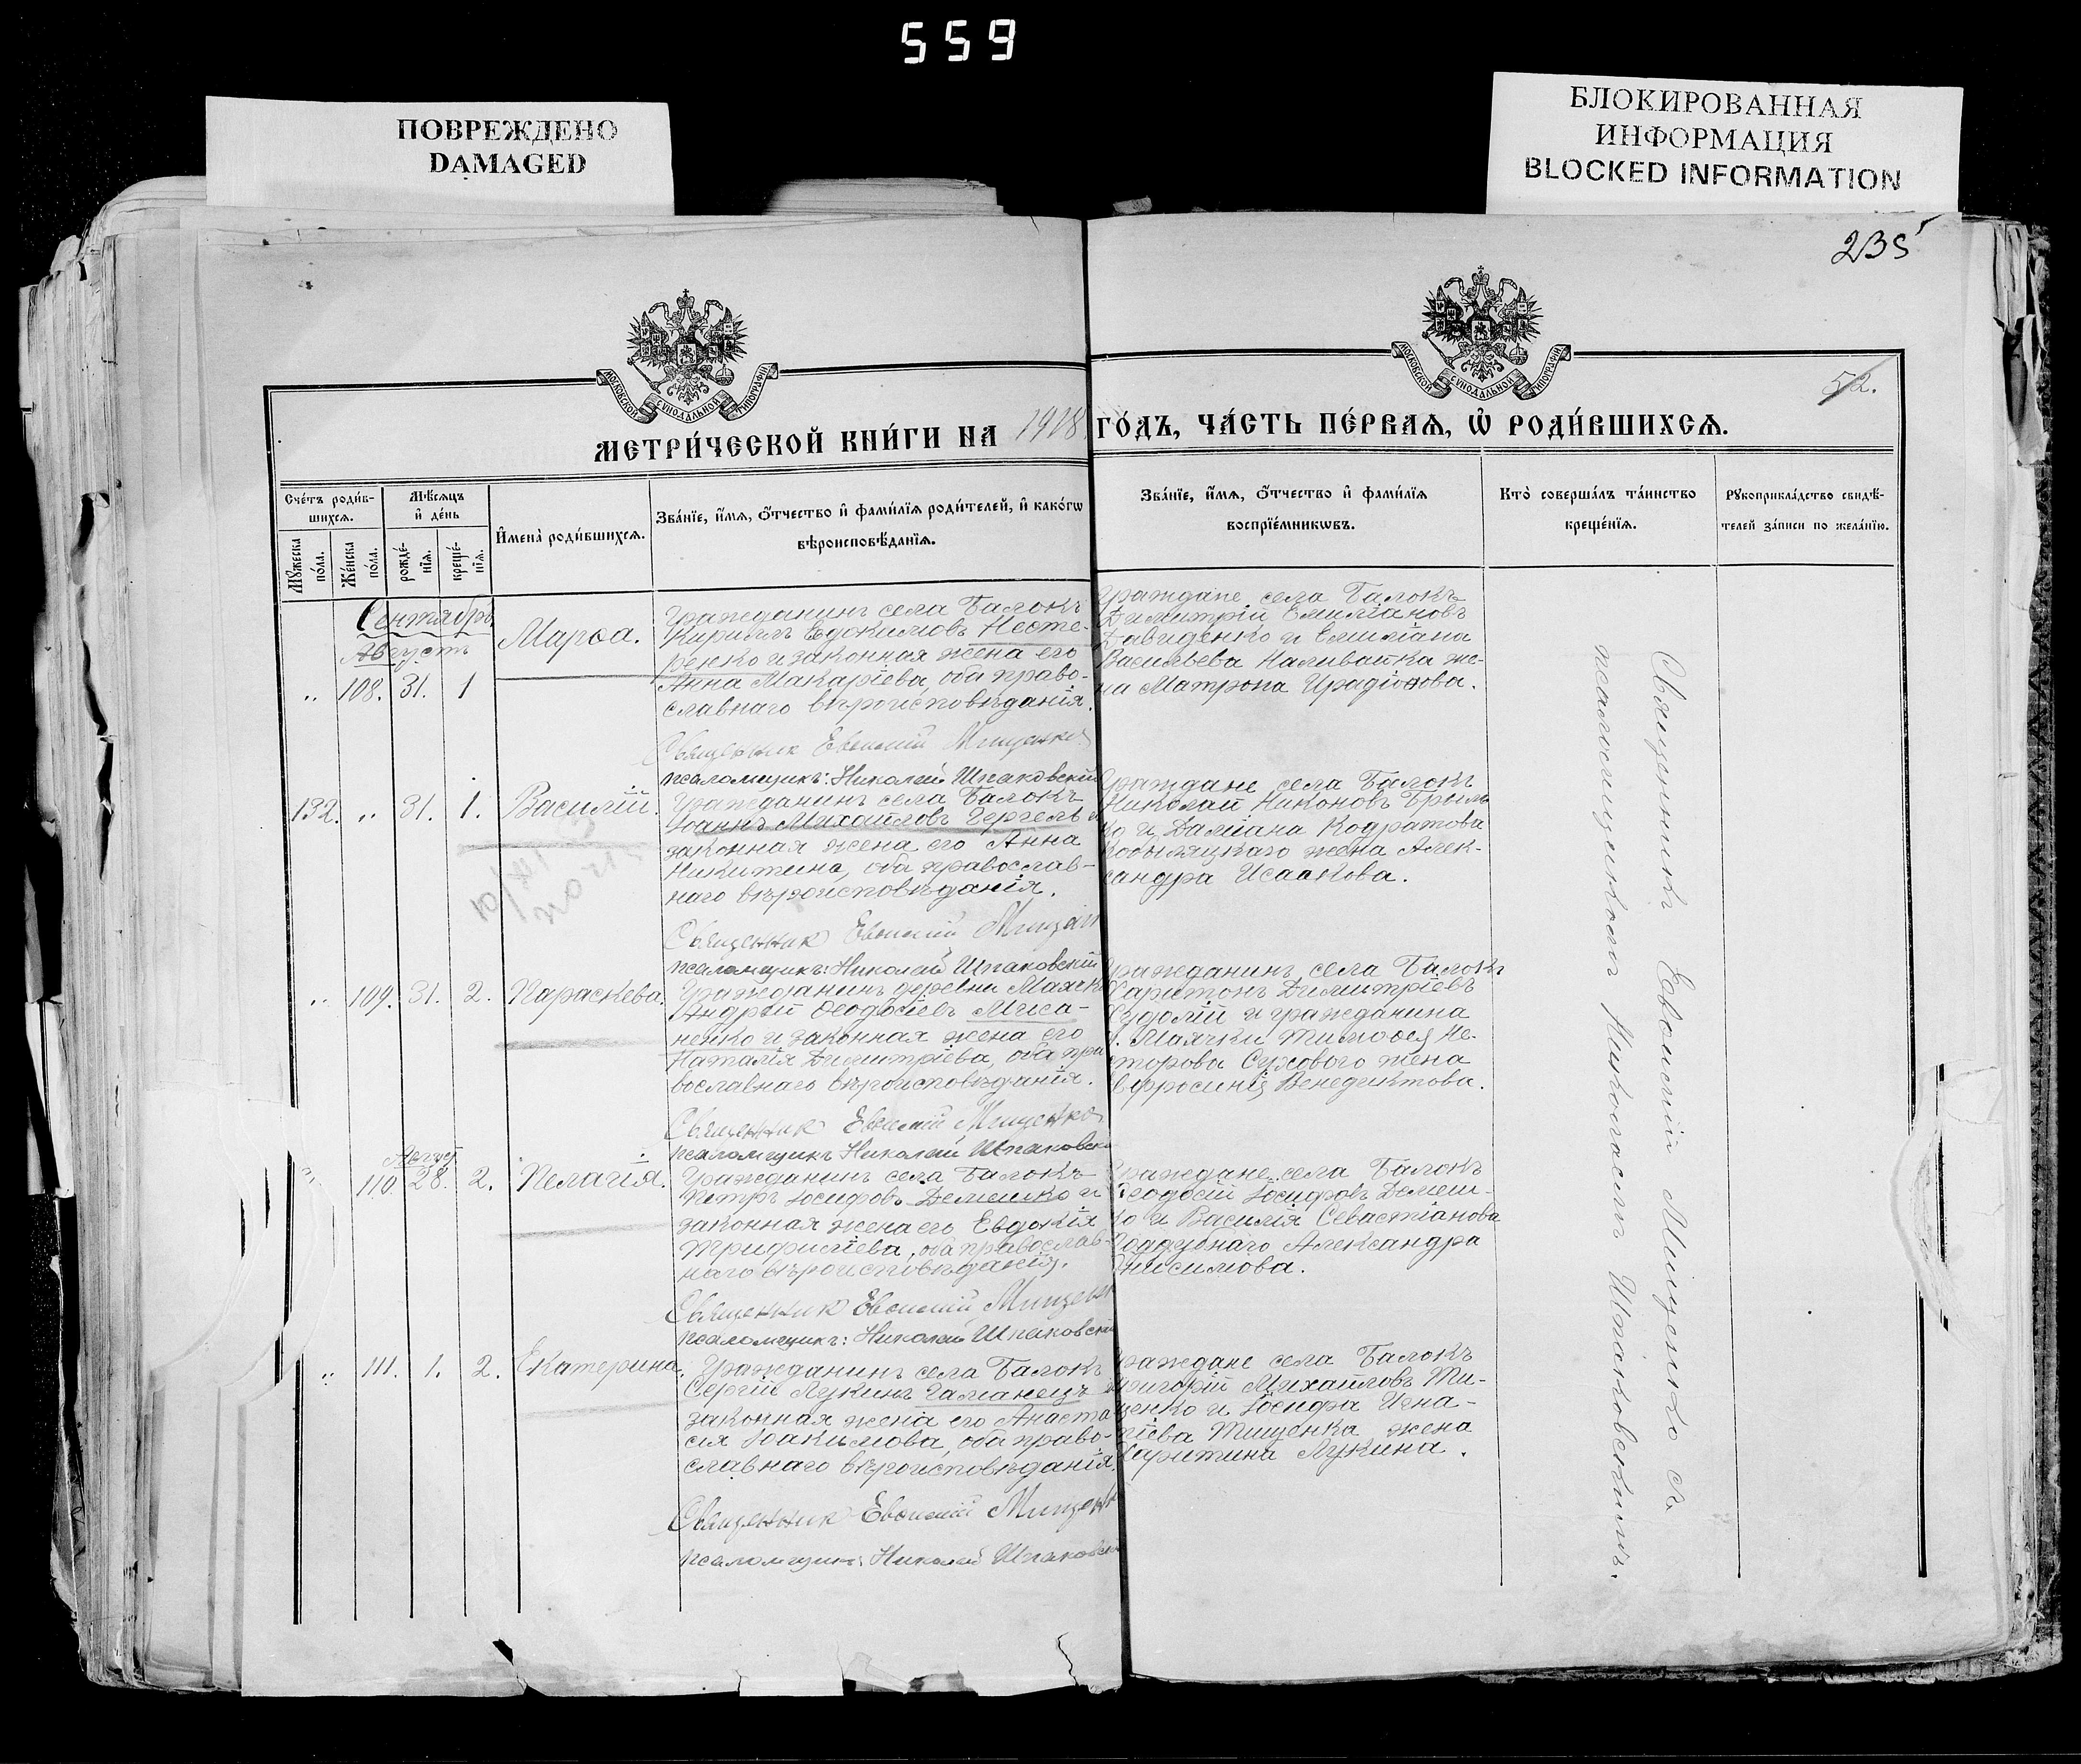 559
ПОВРЕЖДЕНО
DAMAGED
БЛОКИРОВАННАЯ
ИНФОРМАЦИЯ
BLOCKED INFORMATION
235
52.
МОСКОВСКОЙ СѴНОДАЛЬНОЙ ТИПОГРАФІИ
МОСКОВСКОЙ СѴНОДАЛЬНОЙ ТИПОГРАФІИ
МЕТРИ́ЧЕСКОЙ КНИ́ГИ НА 1918
ГО́ДЪ, ЧА́СТЬ ПЕ́РВАѦ, Ѡ҆ РОДИ́ВШИХСѦ.
Сче́тъ роди́в-
шихсѧ.
Мꙋ́жеска
по́ла.
Же́нска
по́ла.
Мѣ́сѧцъ
и҆ де́нь
рожде́-
нїѧ.
креще́-
нїѧ.
И҆мена̀ роди́вшихсѧ.
Зва́нїе, и҆́мѧ, ѻ҆́тчество и҆ фами́лїѧ роди́телей, и҆ како́гѡ
вѣроисповѣ́данїѧ.
Зва́нїе, и҆́мѧ, ѻ҆́тчество и҆ фами́лїѧ
воспрїе́мникѡвъ.
Кто̀ соверша́лъ та́инство
креще́нїѧ.
Рꙋкоприкла́дство свидѣ́-
телей за́писи по жела́нїю.
Сентябрь
Августъ
„ 108. 31. 1
Марѳа.
Гражданинъ села Балокъ
Кириллъ Евдокимовъ Несте-
ренко и законная жена его
Анна Макаріева, оба право-
славнаго вѣроисповѣданія.
Священник Евѳимій Мищенко
псаломщикъ: Николай Шпаковскій
Граждане села Балокъ
Димитрій Емиліановъ
Давиденко и Емиліана
Васильева Наливайка же-
на Матрона Иродіонова.
132. „ 31. 1.
Василій.
Гражданинъ села Балокъ
Іоаннъ Михайловъ Гергель и
законная жена его Анна
Никитина, оба православ-
наго вѣроисповѣданія.
Священник Евѳимій Мищен
псаломщикъ: Николай Шпаковскій
Граждане села Балокъ
Николай Никоновъ Брыль
ко и Даміана Кодратова
Кобыляцкаго жена Алек-
сандра Исаакова.
„ 109. 31. 2.
Параскева.
Гражданинъ деревни Маячк
Андрей Ѳеодосіевъ Миса-
ненко и законная жена его
Наталія Димитріева, оба пра
вославнаго вѣроисповѣданія.
Священник Евѳимій Мищенко
псаломщикъ Николай Шпаковск
Гражданинъ села Балокъ
Харитонъ Димитріевъ
Судолій и гражданина
д. Маячки Тимоѳея Не-
сторова Сухового жена
Евфросинія Венедиктова.
Август
„ 110 28. 2.
Пелагія.
Гражданинъ села Балокъ
Петръ Іосифовъ Демешко и
законная жена его Евдокія
Трифиліева, оба православ-
наго вѣроисповѣданія.
Священник Евѳимій Мищенк
псаломщикъ: Николай Шпаковскій
Граждане села Балокъ
Ѳеодосій Іосифовъ Демеш-
ко и Василія Севастіанова
Поддубнаго Александра
Онисимова.
„ 111. 1. 2.
Екатерина.
Гражданинъ села Балокъ
Сергій Лукинъ Гаманецъ и
законная жена его Анаста
сія Іоакимова, оба право-
славнаго вѣроисповѣданія.
Священник Евѳимій Мищенк
псаломщикъ: Николай Шпаковск
Граждане села Балокъ
Григорій Михайловъ Ти-
щенко и Іосифа Игна-
тіева Тищенка жена
Харитина Лукина.
Священникъ Евѳимій Мищенко съ
псаломщикомъ Николаемъ Шпаковскимъ.